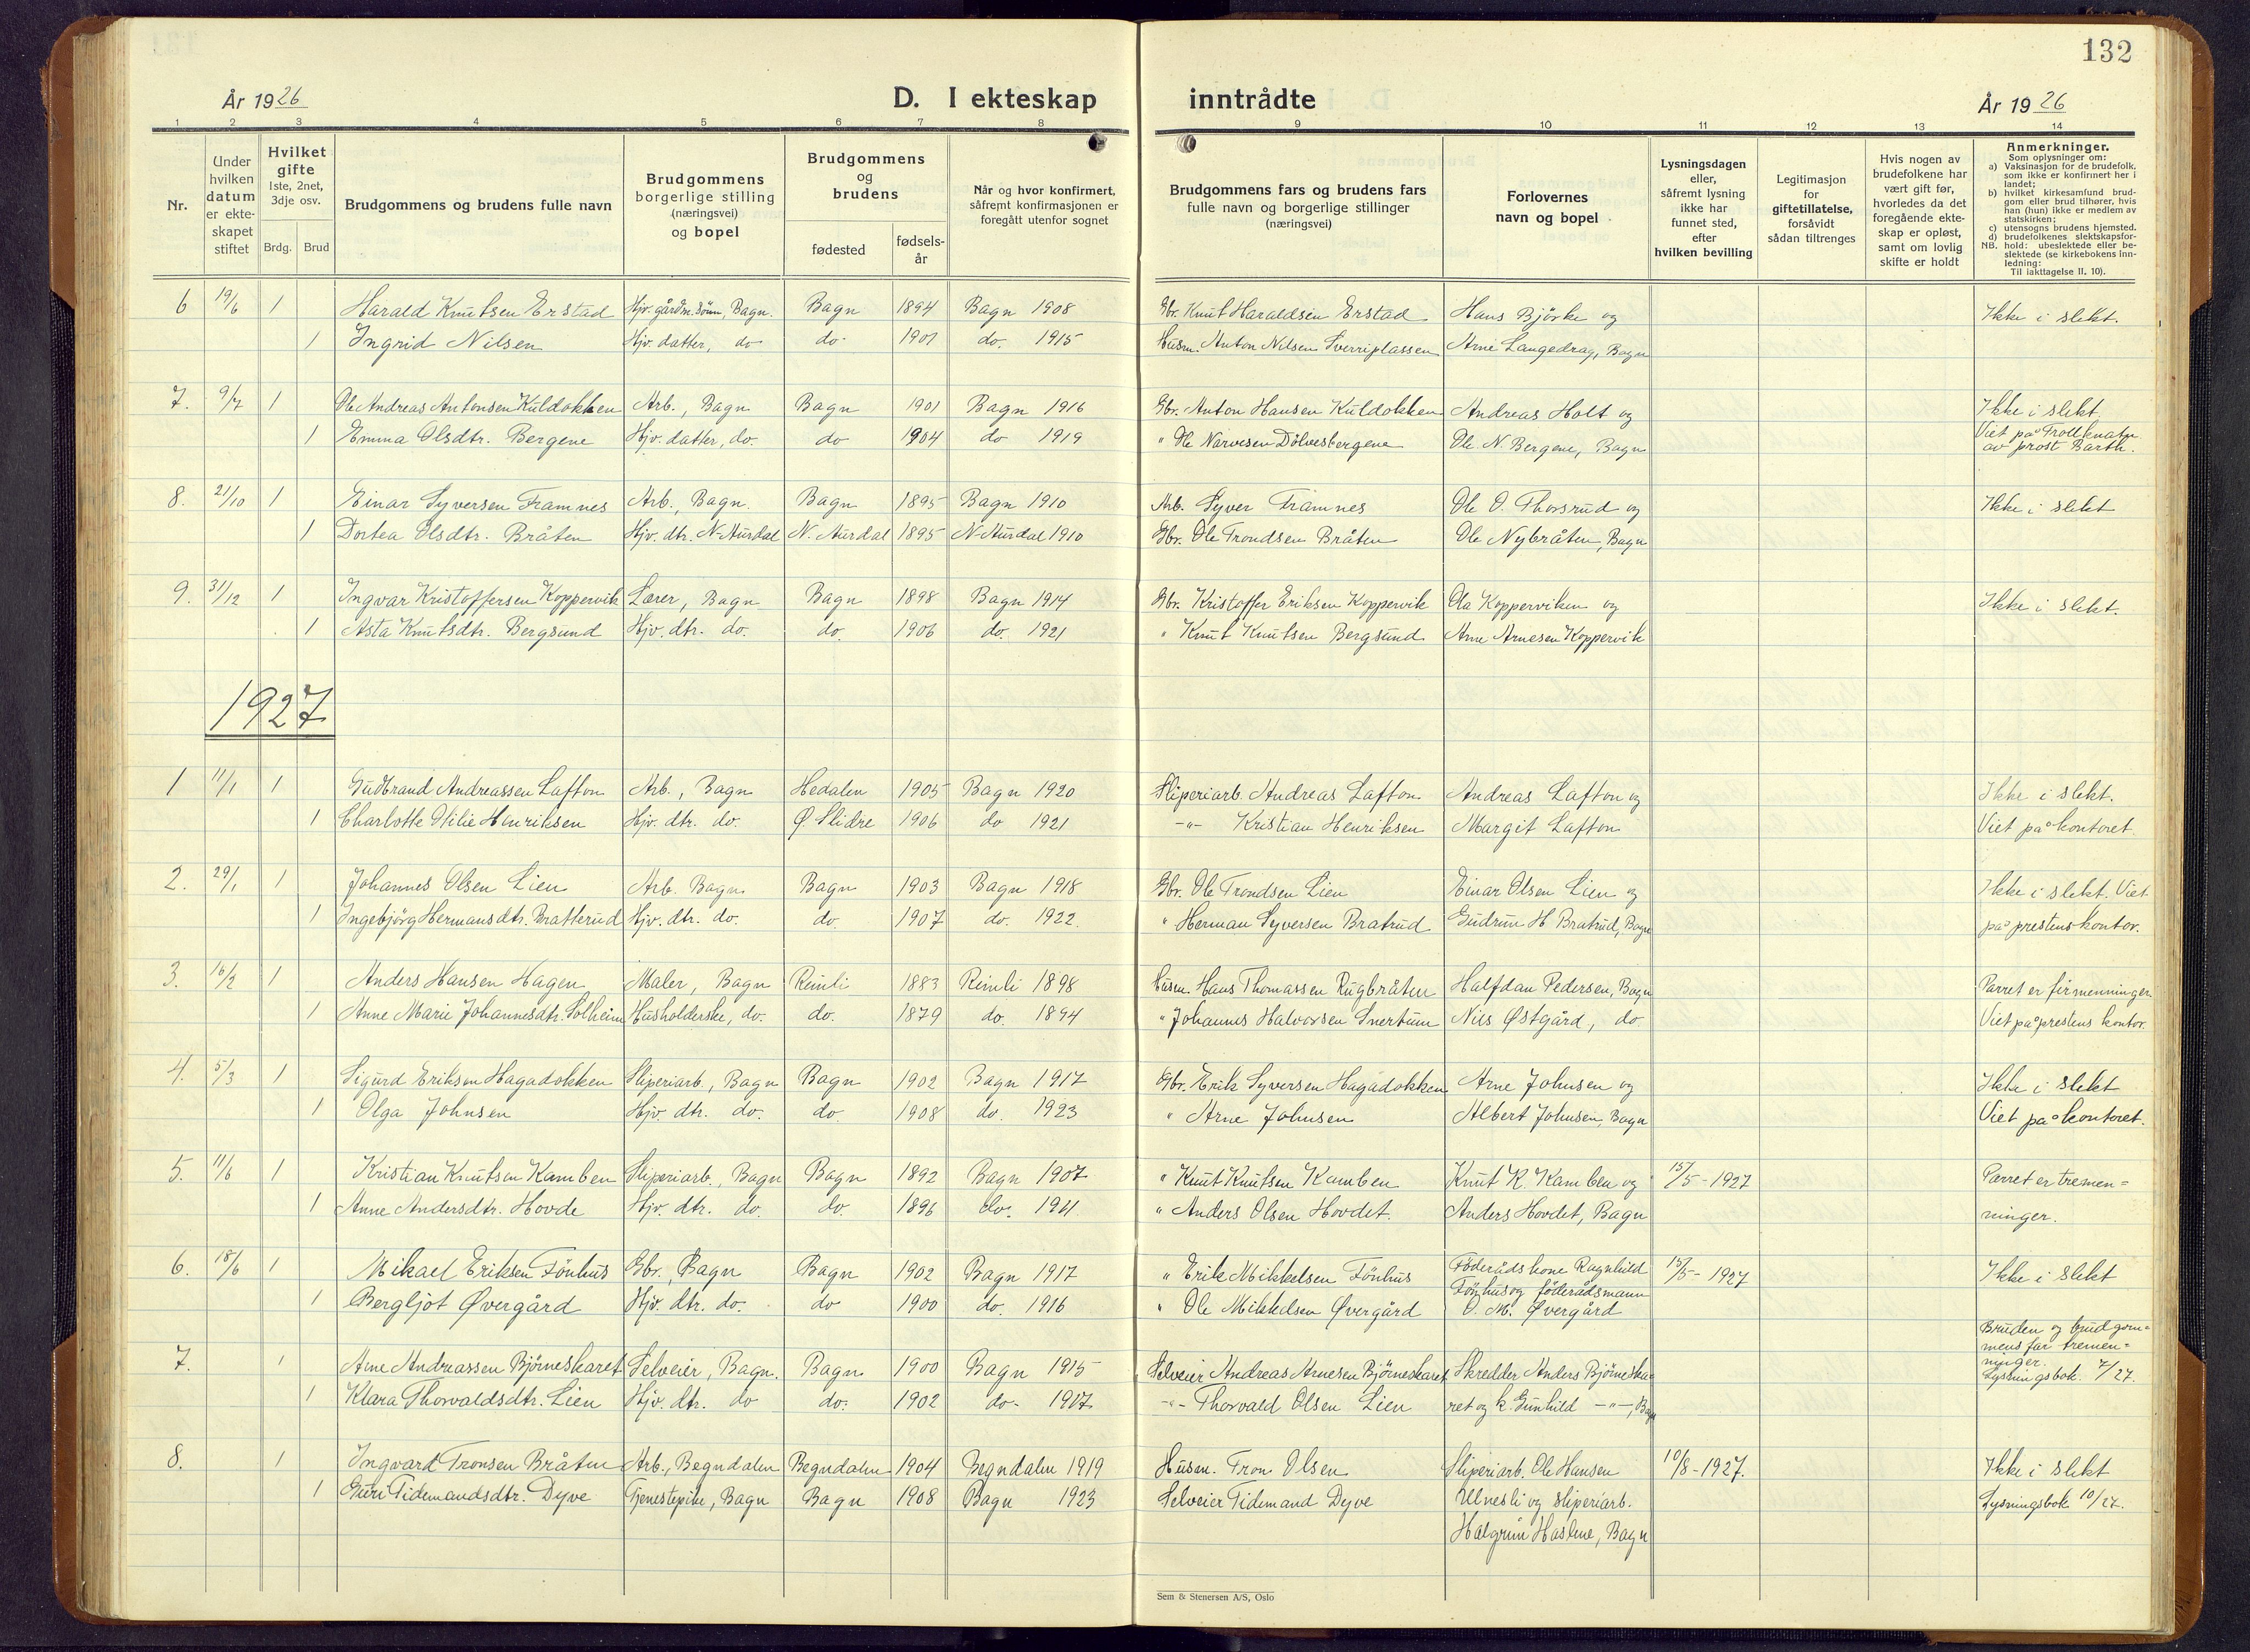 132
År 1926
D. I ekteskap
inntrådte
År 1926
1 2 3 4 5 6 7 8 9 10 11 12 13 14
Nr.
Under hvilken datum er ekte-skapet stiftet
Hvilket gifte
1ste, 2net, 3dje osv.
Brdg. Brud
Brudgommens og brudens fulle navn
Brudgommens borgerlige stilling (næringsvei) og bopel
Brudgommens og brudens
fødested
fødsels-år
Når og hvor konfirmert, såfremt konfirmasjonen er foregått utenfor sognet
Brudgommens fars og brudens fars fulle navn og borgerlige stillinger (næringsvei)
Forlovernes navn og bopel
Lysningsdagen eller, såfremt lysning ikke har funnet sted, efter hvilken bevilling
Legitimasjon for giftetillatelse, forsåvidt sådan tiltrenges
Hvis nogen av brudefolkene har vært gift før, hvorledes da det foregående ekte-skap er opløst, samt om lovlig skifte er holdt
Anmerkninger.
Som oplysninger om:
a) Vaksinasjon for de brudefolk, som ikke er konfirmert her i landet;
b) hvilket kirkesamfund brud-gom eller brud tilhører, hvis han (hun) ikke er medlem av statskirken;
c) utensogns brudens hjemsted.
d) brudefolkenes slektskapsfor-hold: ubeslektede eller be-slektede (se kirkebokens inn-ledning:
NB. Til iakttagelse II. 10).
6 19/6 1 Harald Knutsen Erstad Hjv. gårdm.sönn, Bagn. Bagn 1894 Bagn 1908 Gbr. Knut Haraldsen Erstad Hans Björke og Ikke i slekt.
1 Ingrid Nilsen Hjv. datter, do do. 1901 do. 1915 Husm. Anton Nilsen Sverriplassen Arne Langedrag, Bagn
7. 9/7 1 Ole Andreas Antonsen Kuldokken Arb., Bagn Bagn 1901 Bagn 1916 Gbr. Anton Hansen Kuldokken Andreas Holt og Ikke i slekt.
1 Emma Olsdtr. Bergene Hjv. datter, do. do 1904 do 1919 " Ole Narvesen Dölvesbergene Ole N. Bergene, Bagn Viet på Trollknatn av prost Barth.
8. 21/10 1 Einar Syversen Framnes Arb., Bagn. Bagn 1895 Bagn 1910 Arb. Syver Framnes Ole O. Thorsrud og Ikke i slekt
1 Dortea Olsdtr. Bråten Hjv. dtr. N-Aurdal N. Aurdal 1895 N-Aurdal 1910 Gbr. Ole Trondsen Bråten Ole Nybråten, Bagn
9. 31/12 1 Ingvar Kristoffersen Koppervik Lærer, Bagn Bagn 1898 Bagn 1914 Gbr. Kristoffer Eriksen Koppervik Ola Kopperviken og Ikke i slekt.
1 Asta Knutsdtr. Bergsund Hjv. dtr. do. do. 1906 do. 1921 " Knut Knutsen Bergsund Arne Arnesen Koppervik
1927
1 11/1 1 Gudbrand Andreassen Lafton Arb., Bagn Hedalen 1905 Bagn 1920 Sliperiarb. Andreas Lafton Andreas Lafton og Ikke i slekt.
1 Charlotte Otilie Henriksen Hjv. dtr. do. Ø. Slidre 1906 do 1921 -"- Kristian Henriksen Margit Lafton Viet på kontoret.
2. 29/1 1 Johannes Olsen Lien Arb. Bagn Bagn 1903 Bagn 1918 Gbr. Ole Trondsen Lien Einar Olsen Lien og Ikke i slekt. Viet
1 Ingebjörg Hermansdtr. Bratterud Hjv. dtr. do. do. 1907 do. 1922 " Herman Syversen Bratrud Gudrun H Bratrud, Bagn på prestens kontor.
3. 16/2 1 Anders Hansen Hagen Maler, Bagn Reinli 1883 Reinli 1898 Husm. Hans Thomassen Rugbråten Halfdan Pedersen, Bagn Parret er firmenninger.
1 Anne Marie Johannesdtr. Solheim Husholderske, do. do. 1879 do. 1894 " Johannes Halvorsen Snertum Nils Østgård, do. Viet på prestens kontor.
4. 5/3 1 Sigurd Eriksen Hagadokken Sliperiarb., Bagn Bagn 1902 Bagn 1917 Gbr. Erik Syversen Hagadokken Arne Johnsen og Ikke i slekt
1 Olga Johnsen Hjv dtr. do. do. 1908 do. 1923 " Arne Johnsen Albert Johnsen, Bagn Viet på kontoret.
5. 11/6 1 Kristian Knutsen Kamben Sliperiarb., Bagn Bagn 1892 Bagn 1907 " Knut Knutsen Kamben Knut K. Kamben og 15/5-1927 Parret er tremen=
1 Anne Andersdtr. Hovde Hjv. dtr. do. do. 1896 do. 1911 " Anders Olsen Hovdet. Anders Hovdet, Bagn ninger.
6. 18/6 1 Mikael Eriksen Fönhus Gbr., Bagn Bagn 1902 Bagn 1917 " Erik Mikkelsen Fönhus Föderådskone Ragnhild Fönhus og föderådsmann 15/5-1927 Ikke i slekt
1 Bergljot Øvergård Hjv. dtr. do. do 1900 do. 1916 " Ole Mikkelsen Øvergård O. M. Øvergård
7. 1 Arne Andreassen Björneskaret Selveier, Bagn. Bagn 1900 Bagn 1915 Selveier Andreas Arnesen Björneskaret Skredder Anders Björneska- Bruden og brudgom=mens far tremen=ninger.
1 Klara Thorvaldsdtr. Lien Hjv. dtr. do do. 1902 do. 1917 -"- Thorvald Olsen Lien ret og k. Gunhild -"-, Bagn Lysningsbok. 7/27.
8. 1 Ingvard Tronsen Bråten Arb., Begndalen Begndalen 1904 Begndalen 1919 Husm. Tron Olsen Sliperiarb. Ole Hansen 10/8-1927. Ikke i slekt
1 Guri Tidemandsdtr. Dyve Tjenestepike, Bagn Bagn 1908 Bagn 1923 Selveier Tidemand Dyve Ulnesli og sliperiarb. Lysningsbok 10/27.
Halgrim Haslene, Bagn
Sem & Stenersen A/S, Oslo